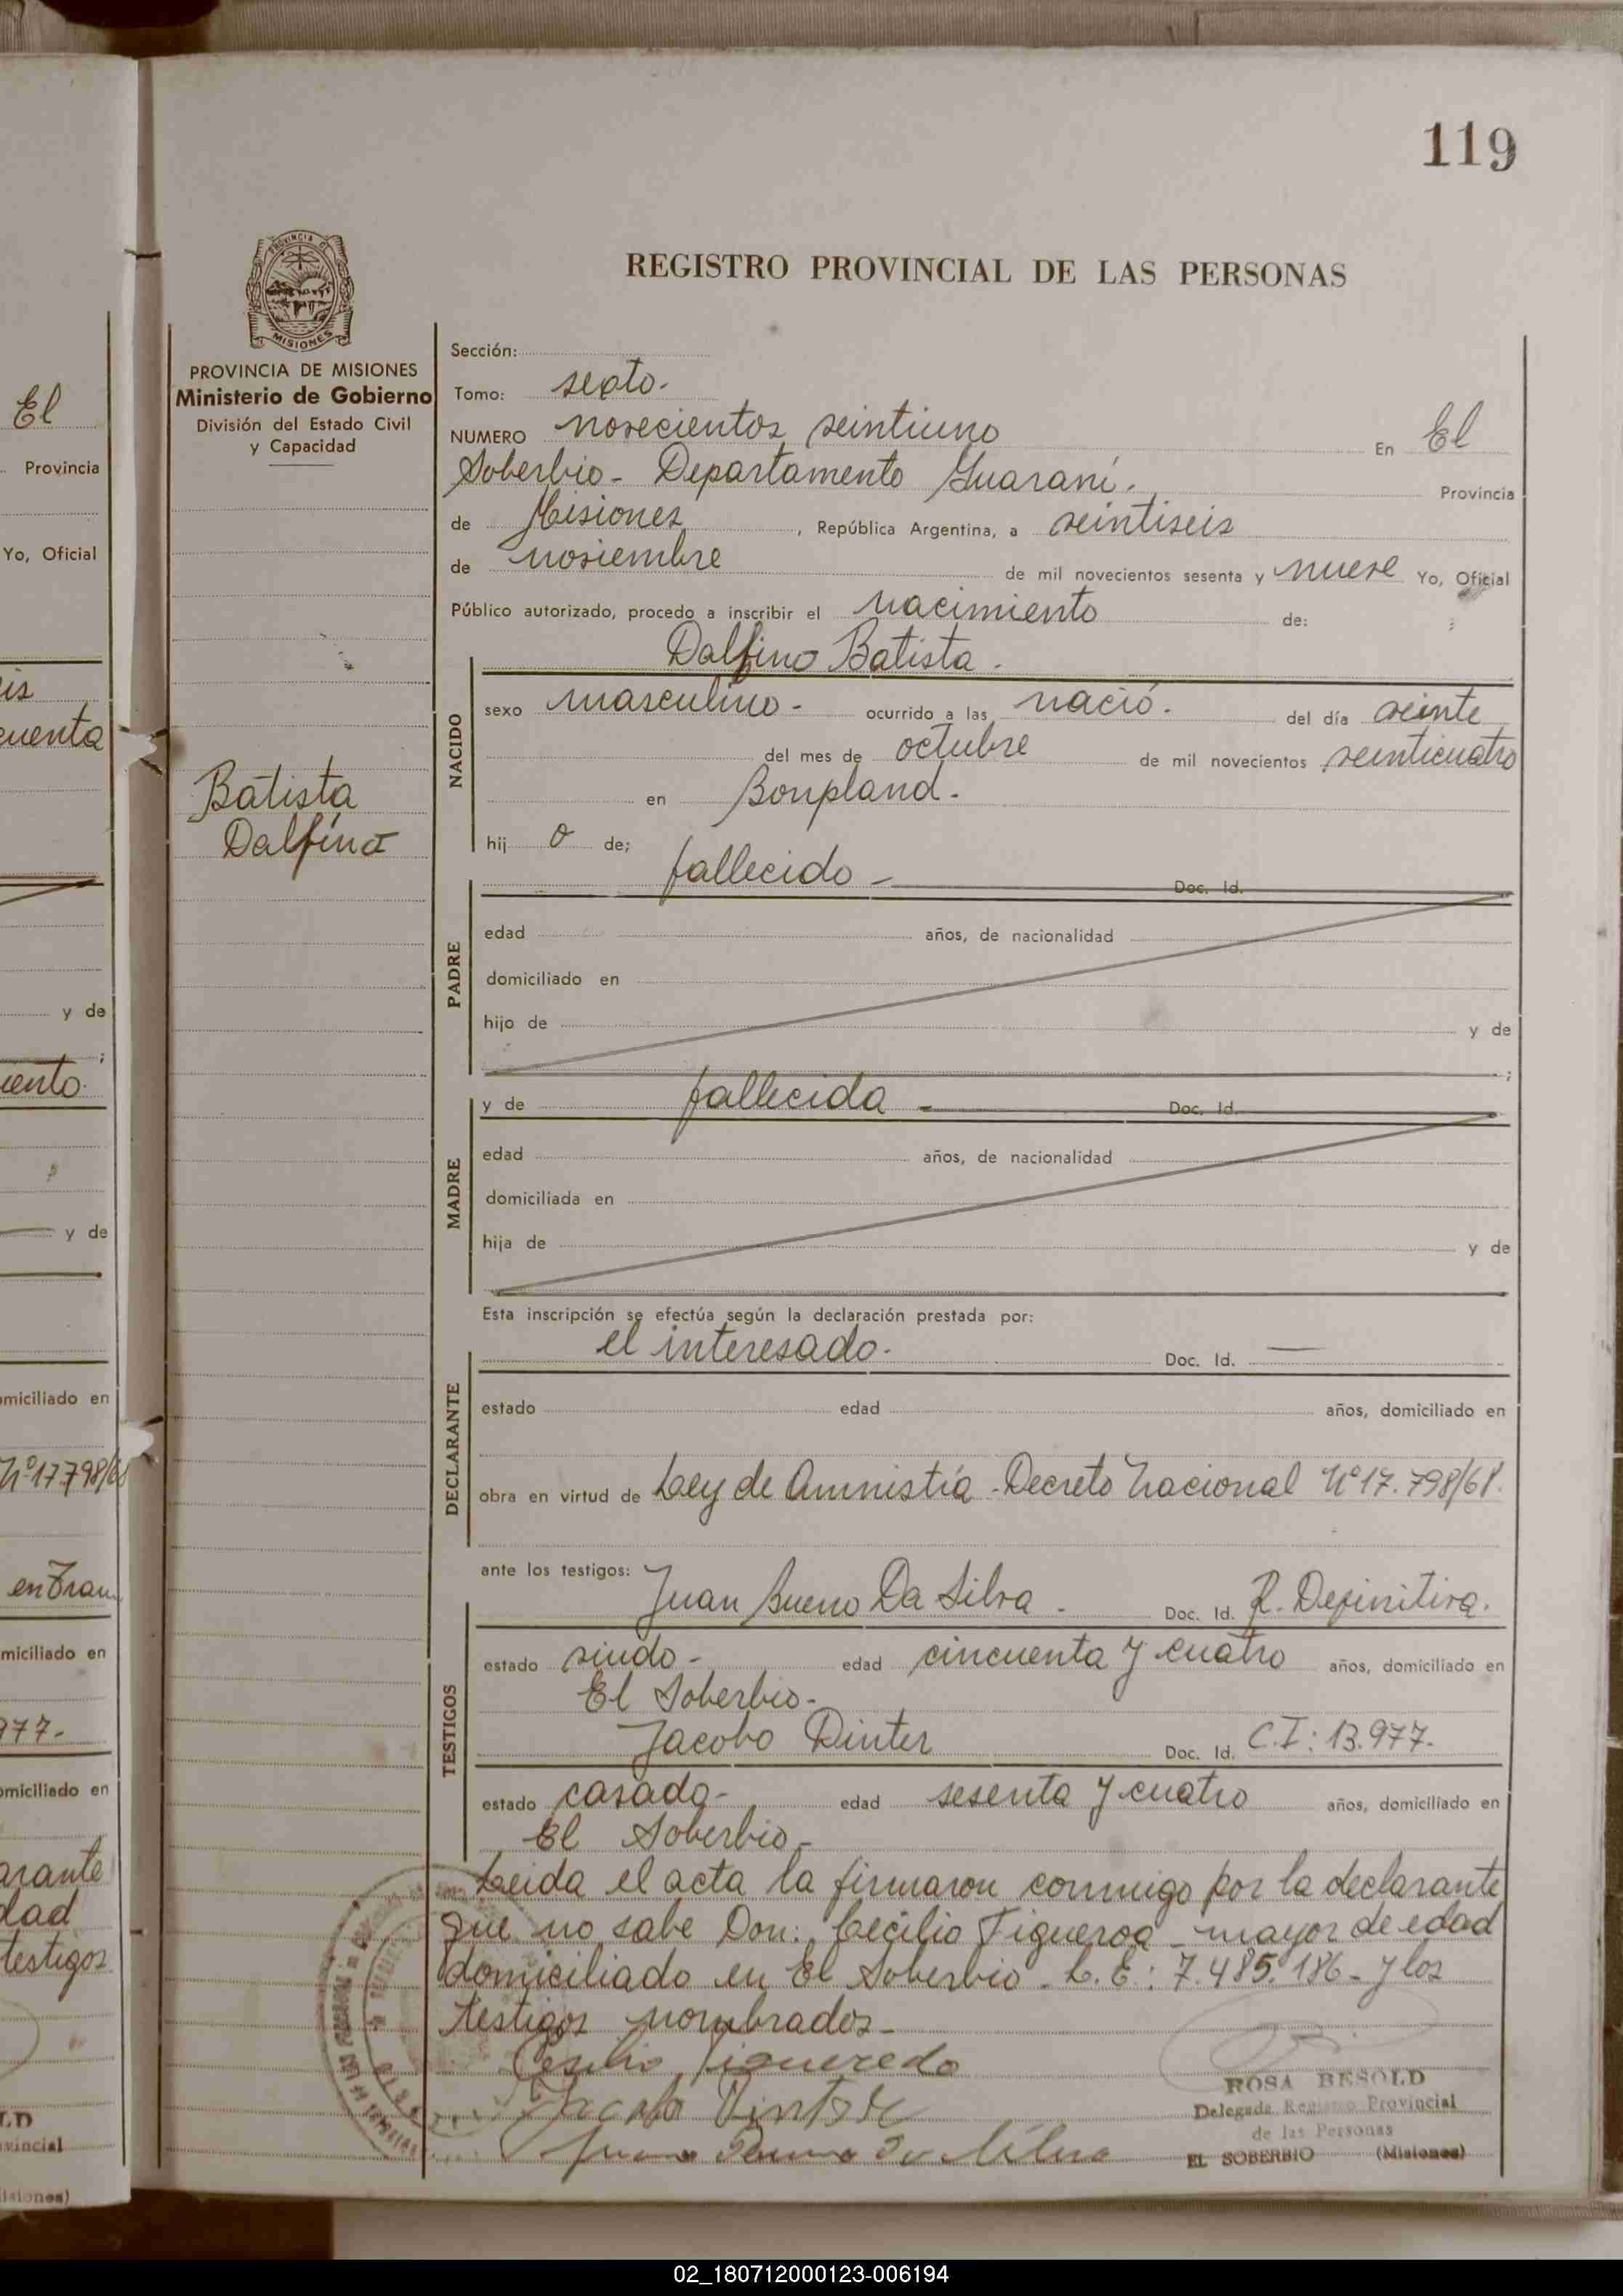 119
REGISTRO PROVINCIAL DE LAS PERSONAS
PROVINCIA DE MISIONES
Ministerio de Gobierno
División del Estado Civil
y Capacidad
Batista
Dalfino
Sección:
Tomo: sexto.
NUMERO novecientos veintiuno En El
Soberbio - Departamento Guaraní. Provincia
de Misiones, República Argentina, a veintiseis
de noviembre de mil novecientos sesenta y nueve Yo, Oficial
Público autorizado, procedo a inscribir el nacimiento de:
Dalfino Batista.
NACIDO
sexo masculino - ocurrido a las nació. del día veinte
del mes de octubre de mil novecientos veinticuatro
en Bonpland.
hij o de;
fallecido - Doc. Id.
PADRE
edad años, de nacionalidad
domiciliado en
hijo de y de
;
MADRE
y de fallecida - Doc. Id.
edad años, de nacionalidad
domiciliada en
hija de y de
Esta inscripción se efectúa según la declaración prestada por:
el interesado. Doc. Id. —
DECLARANTE
estado edad años, domiciliado en
obra en virtud de Ley de Amnistía - Decreto Nacional Nº 17.798/68.
ante los testigos: Juan Bueno Da Silva - Doc. Id. R. Definitiva.
TESTIGOS
estado viudo - edad cincuenta y cuatro años, domiciliado en
El Soberbio -
Jacobo Dinter Doc. Id. C.I: 13.977.
estado casado - edad sesenta y cuatro años, domiciliado en
El Soberbio -
Leida el acta la firmaron conmigo por la declarante
que no sabe Don: Cecilio Figueroa - mayor de edad
domiciliado en El Soberbio - L.E: 7.485.186 - y los
testigos nombrados -
Figueredo
ROSA BESOLD
Delegada Registro Provincial
de las Personas
EL SOBERBIO (Misiones)
El
Provincia
Yo, Oficial
y de
y de
domiciliado en
Nº 17.798/68
domiciliado en
977.
domiciliado en
testigos
02_180712000123-006194